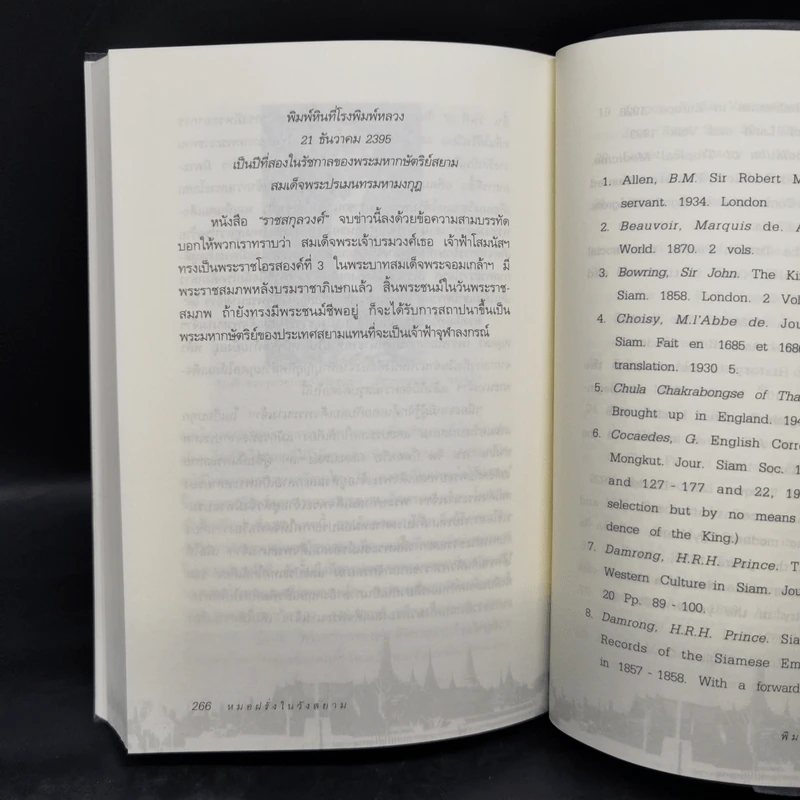 พิมพ์หินที่โรงพิมพ์หลวง
21 ธันวาคม 2395
เป็นปีที่สองในรัชกาลของพระมหากษัตริย์สยาม
สมเด็จพระปรเมนทรมหามงกุฎ
หนังสือ "ราชสกุลวงศ์" จบข่าวนี้ลงด้วยข้อความสามบรรทัด
บอกให้พวกเราทราบว่า สมเด็จพระเจ้าบรมวงศ์เธอ เจ้าฟ้าโสมนัสฯ
ทรงเป็นพระราชโอรสองค์ที่ 3 ในพระบาทสมเด็จพระจอมเกล้าฯ มี
พระราชสมภพหลังบรมราชาภิเษกแล้ว สิ้นพระชนม์ในวันพระราช-
สมภพ ถ้ายังทรงมีพระชนม์ชีพอยู่ ก็จะได้รับการสถาปนาขึ้นเป็น
พระมหากษัตริย์ของประเทศสยามแทนที่จะเป็นเจ้าฟ้าจุฬาลงกรณ์
266 หมอฝรั่งในวังสยาม
1. Allen, B.M. Sir Robert M
servant. 1934. London
2. Beauvoir, Marquis de. A
World. 1870. 2 vols.
3. Bowring, Sir John. The Ki
Siam. 1858. London. 2 Vol
4. Choisy, M.l'Abbe de. Jou
Siam. Fait en 1685 et 168
translation. 1930 5.
5. Chula Chakrabongse of Tha
Brought up in England. 194
6. Cocaedes, G. English Corre
Mongkut. Jour. Siam Soc. 1
and 127 - 177 and 22, 19
selection but by no means
dence of the King.)
7. Damrong, H.R.H. Prince. T
Western Culture in Siam. Jou
20 Pp. 89 - 100.
8. Damrong, H.R.H. Prince. Sia
Records of the Siamese Em
in 1857 - 1858. With a forward
พิม